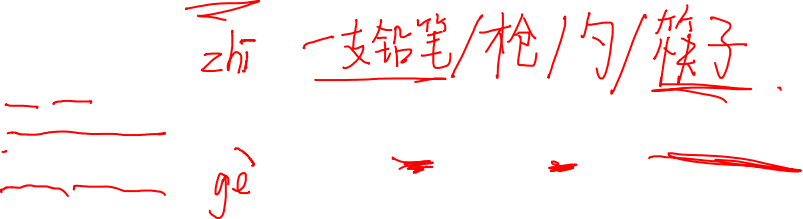 zhī 一支铅笔/枪/勺/筷子
gè